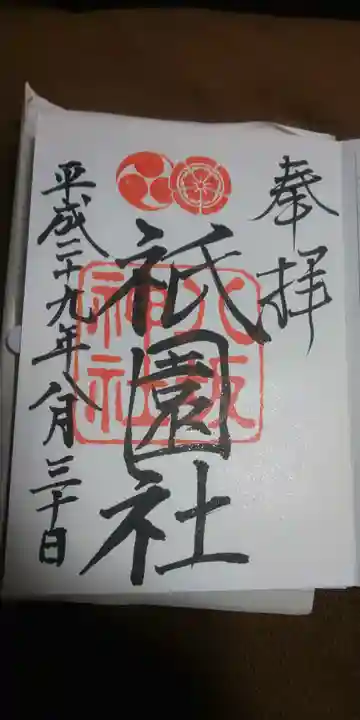 奉拝
祇園社
八坂
神社
平成二十九年八月三十日